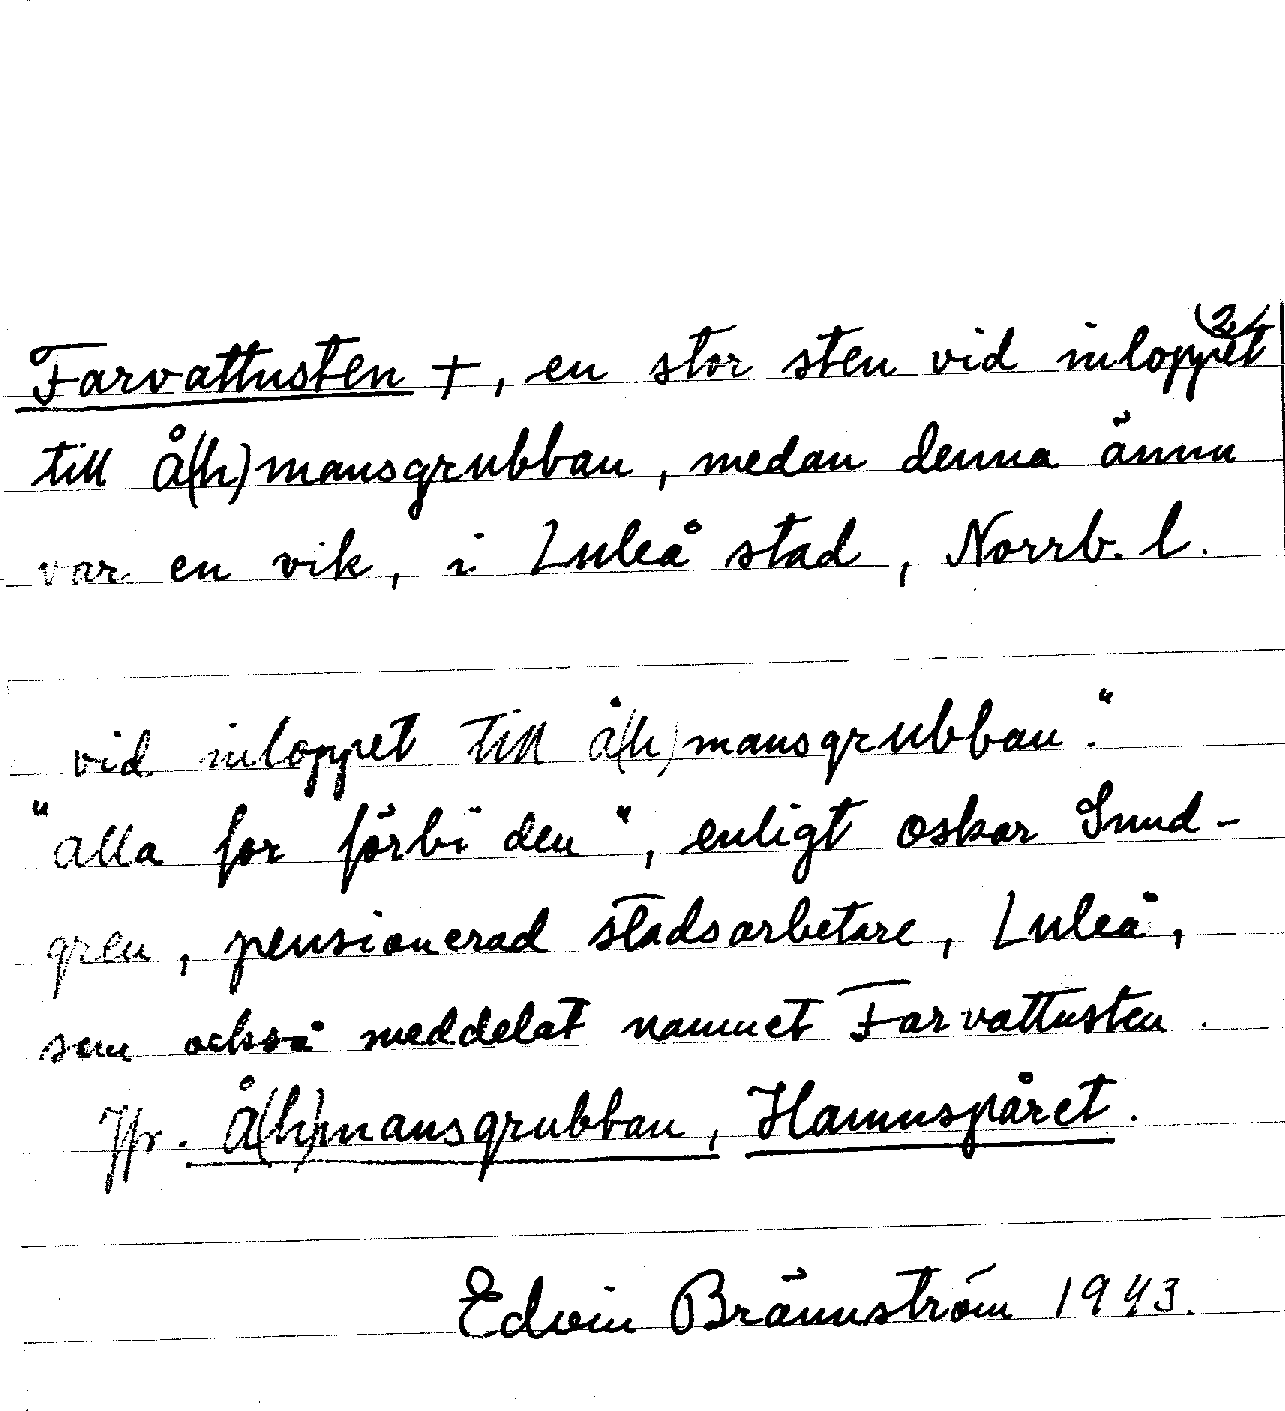 (2.)
Farvattusten +, en stor sten vid inloppet
till Å(h)mansgrubban, medan denna ännu
var en vik, i Luleå stad, Norrb. l.
vid inloppet till å(h)mansgrubban".
"alla for förbi den", enligt Oskar Sund-
gren, pensionerad stadsarbetare, Luleå,
som också meddelat namnet Farvattusten.
Jfr. Å(h)mansgrubban, Hamnspåret.
Edvin Brännström 1943.